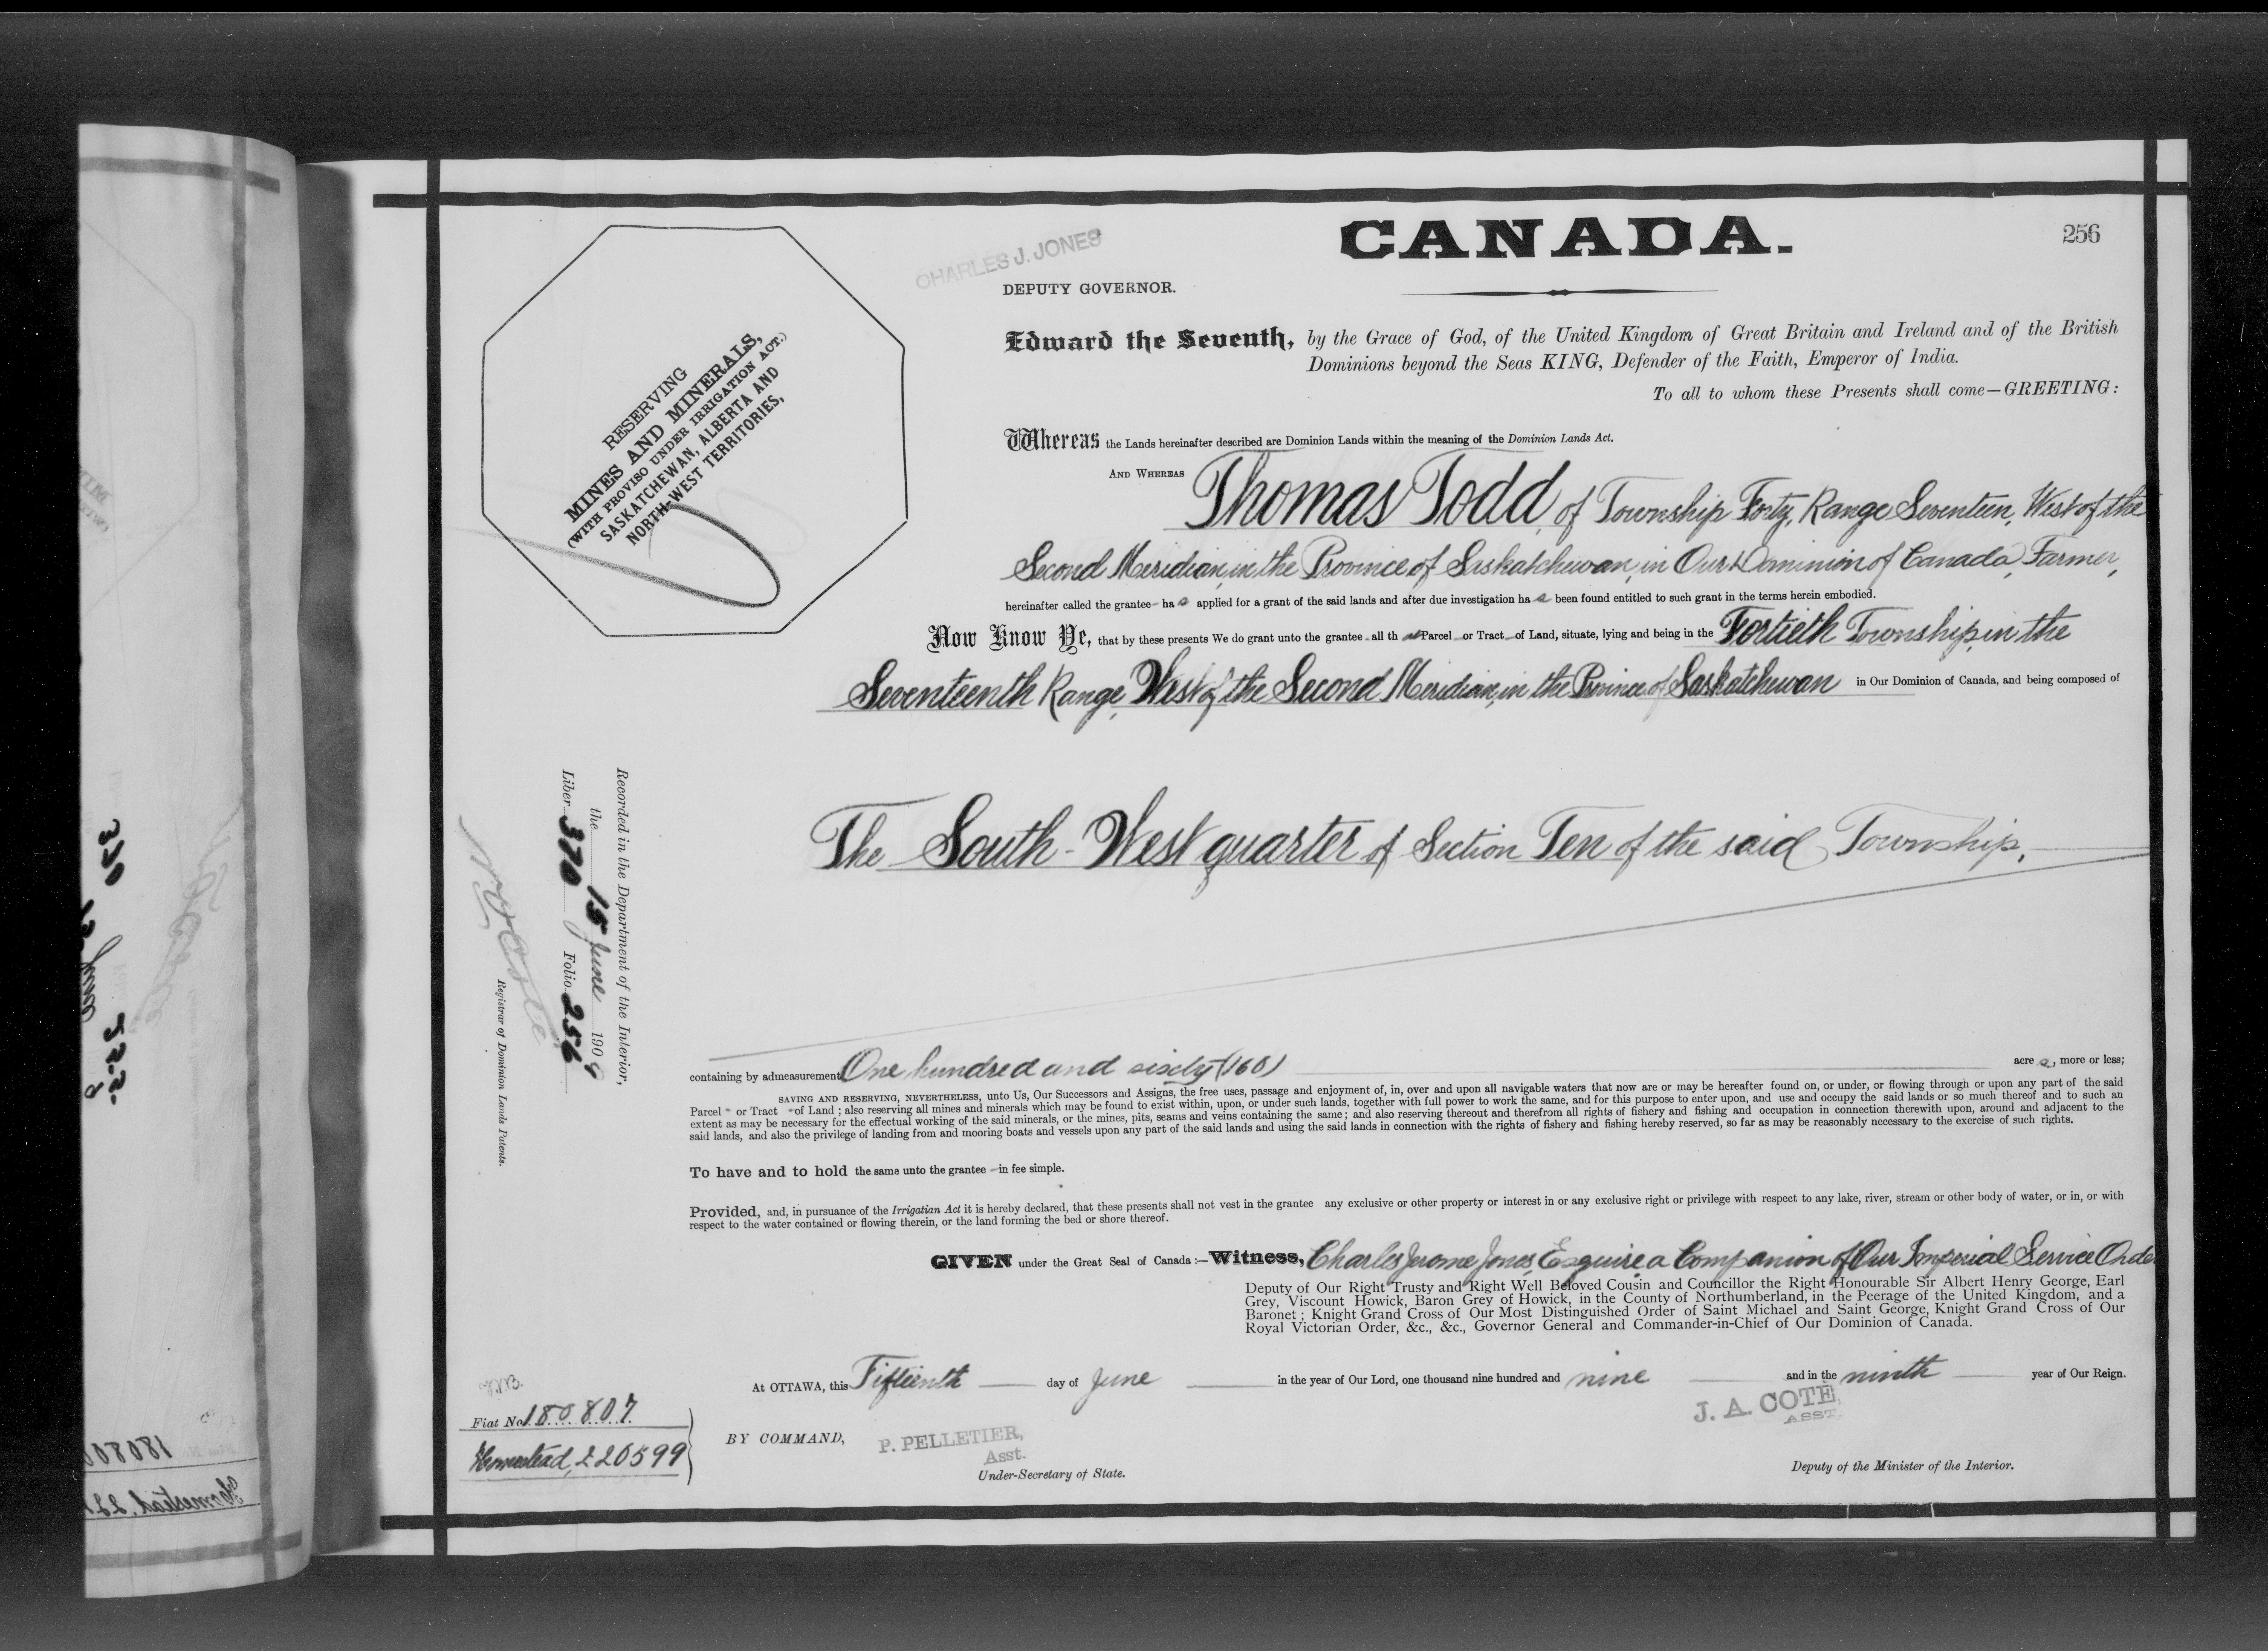 CANADA.
256
CHARLES J. JONES
DEPUTY GOVERNOR.
RESERVING
MINES AND MINERALS,
(WITH PROVISO UNDER IRRIGATION ACT.)
SASKATCHEWAN, ALBERTA AND
NORTH-WEST TERRITORIES,
Edward the Seventh, by the Grace of God, of the United Kingdom of Great Britain and Ireland and of the British
Dominions beyond the Seas KING, Defender of the Faith, Emperor of India.
To all to whom these Presents shall come—GREETING:
Whereas the Lands hereinafter described are Dominion Lands within the meaning of the Dominion Lands Act.
AND WHEREAS Thomas Todd, of Township Forty, Range Seventeen, West of the
Second Meridian, in the Province of Saskatchewan, in Our Dominion of Canada, Farmer,
hereinafter called the grantee - has applied for a grant of the said lands and after due investigation has been found entitled to such grant in the terms herein embodied.
Now Know Ye, that by these presents We do grant unto the grantee - all that Parcel - or Tract - of Land, situate, lying and being in the Fortieth Township, in the
Seventeenth Range, West of the Second Meridian, in the Province of Saskatchewan in Our Dominion of Canada, and being composed of
The South-West quarter of Section Ten of the said Township,
Recorded in the Department of the Interior,
the 15 June 1909
Liber 370 Folio 256
Registrar of Dominion Lands Patents.
containing by admeasurement One hundred and sixty (160) acres, more or less;
SAVING AND RESERVING, NEVERTHELESS, unto Us, Our Successors and Assigns, the free uses, passage and enjoyment of, in, over and upon all navigable waters that now are or may be hereafter found on, or under, or flowing through or upon any part of the said
Parcel - or Tract - of Land; also reserving all mines and minerals which may be found to exist within, upon, or under such lands, together with full power to work the same, and for this purpose to enter upon, and use and occupy the said lands or so much thereof and to such an
extent as may be necessary for the effectual working of the said minerals, or the mines, pits, seams and veins containing the same; and also reserving thereout and therefrom all rights of fishery and fishing and occupation in connection therewith upon, around and adjacent to the
said lands, and also the privilege of landing from and mooring boats and vessels upon any part of the said lands and using the said lands in connection with the rights of fishery and fishing hereby reserved, so far as may be reasonably necessary to the exercise of such rights.
To have and to hold the same unto the grantee - in fee simple.
Provided, and, in pursuance of the Irrigatian Act it is hereby declared, that these presents shall not vest in the grantee any exclusive or other property or interest in or any exclusive right or privilege with respect to any lake, river, stream or other body of water, or in, or with
respect to the water contained or flowing therein, or the land forming the bed or shore thereof.
GIVEN under the Great Seal of Canada:—Witness, Charles Jerome Jones, Esquire, a Companion of Our Imperial Service Order
Deputy of Our Right Trusty and Right Well Beloved Cousin and Councillor the Right Honourable Sir Albert Henry George, Earl
Grey, Viscount Howick, Baron Grey of Howick, in the County of Northumberland, in the Peerage of the United Kingdom, and a
Baronet; Knight Grand Cross of Our Most Distinguished Order of Saint Michael and Saint George, Knight Grand Cross of Our
Royal Victorian Order, &c., &c., Governor General and Commander-in-Chief of Our Dominion of Canada.
At OTTAWA, this Fifteenth day of June in the year of Our Lord, one thousand nine hundred and nine and in the ninth year of Our Reign.
Fiat No 180807
Homestead, 220599
BY COMMAND,
P. PELLETIER,
Asst.
Under-Secretary of State.
J. A. COTÉ,
ASST.
Deputy of the Minister of the Interior.